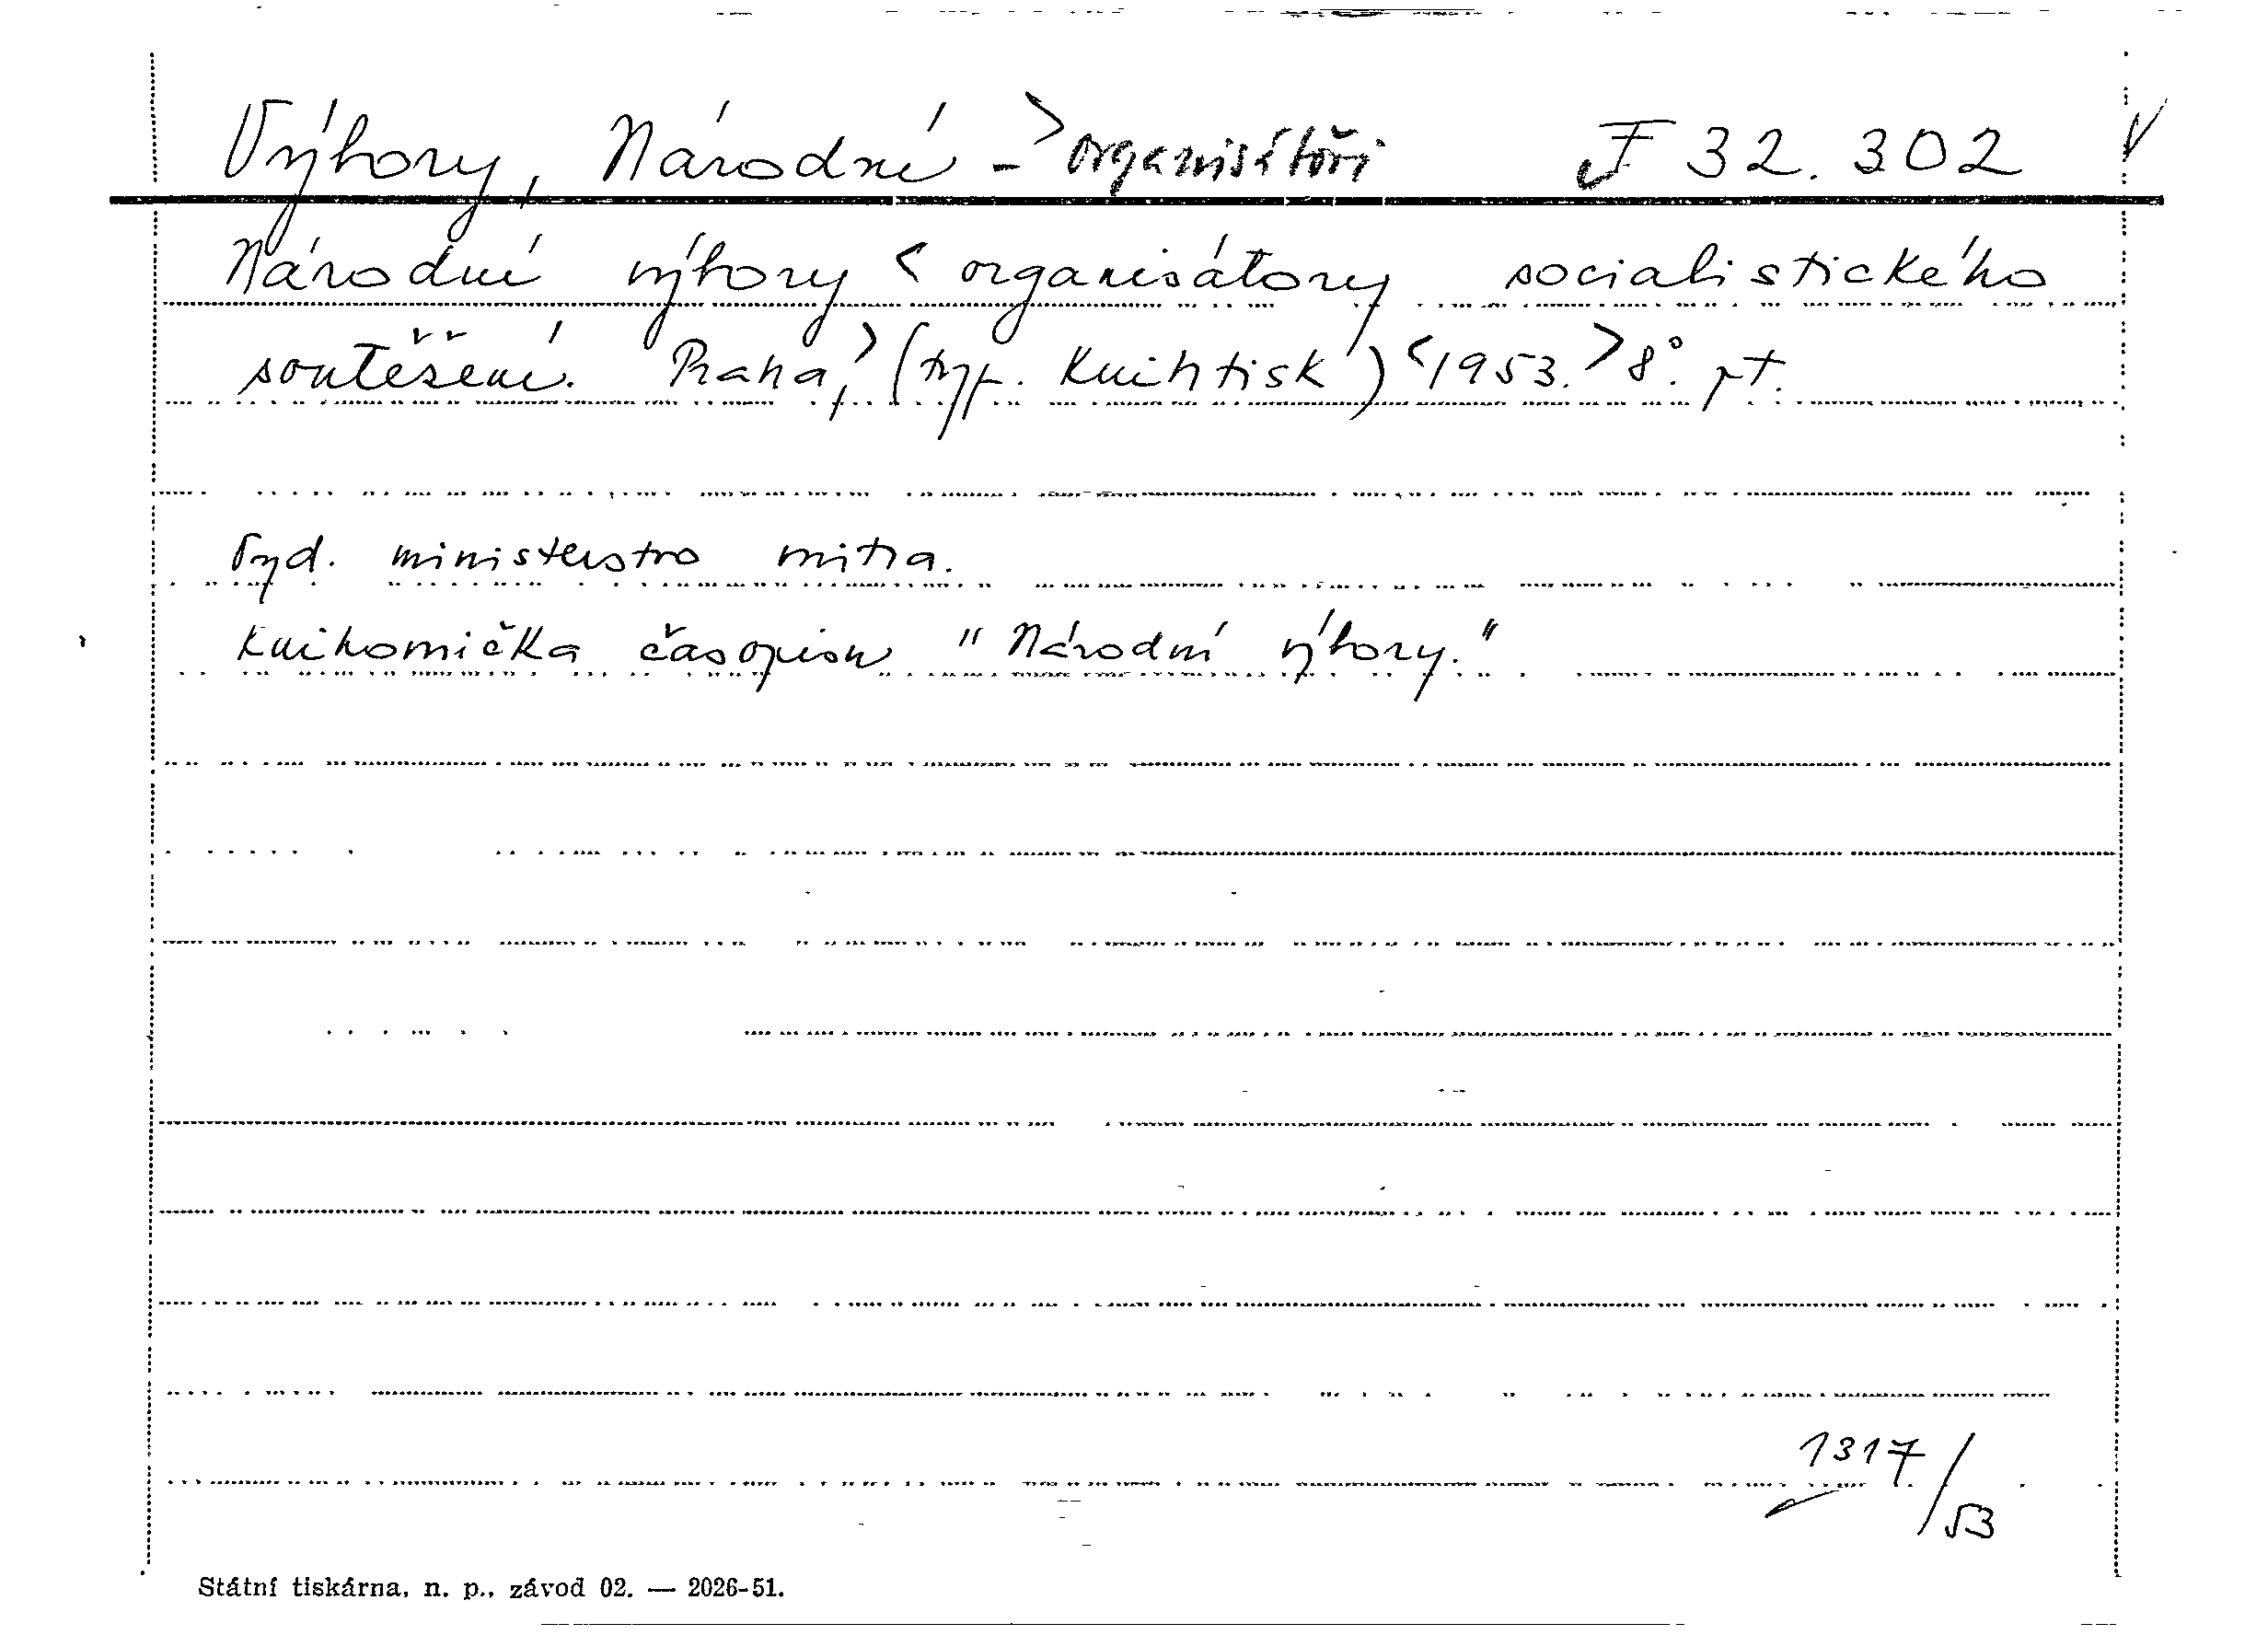 Výbory, Národní - > organisátoři F 32.302 V
Národní výbory < organisátory socialistického
soutěžení. Praha, > (typ. Knihtisk) < 1953. > 8°. pt.
Vyd. ministerstvo vnitra.
Knihovnička časopisu "Národní výbory."
1317/53
Státní tiskárna, n. p., závod 02. — 2026-51.